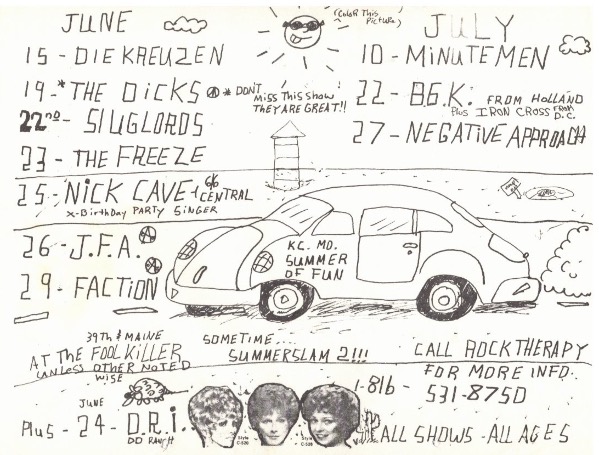 JUNE
15 - DIE KREUZEN
19 -* THE DICKS Ⓐ * DON'T MISS THIS SHOW THEY ARE GREAT!!
22ND - SLUGLORDS
23 - THE FREEZE
25 - NICK CAVE + C/O CENTRAL
X-BIRTHDAY PARTY SINGER
26 - J.F.A.
29 - FACTION
(COLOR THIS PICTURE)
JULY
10 - MINUTEMEN
22 - B.G.K. FROM HOLLAND
PLUS IRON CROSS FROM D.C.
27 - NEGATIVE APPROACH
K.C. MO.
SUMMER
OF FUN
39TH & MAINE
AT THE FOOLKILLER
UNLESS OTHER NOTED
WISE
SOMETIME....
SUMMERSLAM 2!!!
CALL ROCK THERAPY
FOR MORE INFO.
1-816-531-8750
JUNE
PLUS - 24 - D.R.I.
DD RANCH
Style
C-526
Style
Style
ALL SHOWS - ALL AGES